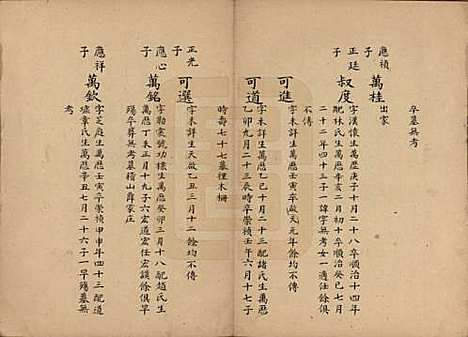 卒墓無考
應禎
子
萬桂
出家
正廷
子
叔度
字漢懷生萬歷庚子十月二十八卒順治十四年
配林氏生萬歷辛亥二月初十卒順治癸巳七月
二十二年四十三子一諱字無考女一適任餘俱
不傳
可進
字未詳生萬歷壬寅卒啟天元年餘均不傳
可道
字未詳生萬歷乙巳十月二十三配諸氏生萬歷
乙卯九月二十三辰時卒崇禎壬年六月十七子
時壽七十七墓徑木柵
正光
子
可選
字未詳生天啟乙丑三月十二餘均不傳
應心
子
萬銘
字勒震號宏功生萬歷癸卯三月十八配趙氏生
萬歷丁未正月十九子六宏道宏任宏謨餘俱早
殤卒葬無考墓稽山薛家庄
應祥
子
萬欽
字芝庭生萬歷壬寅卒崇禎甲申年四十三配道
墟章氏生萬歷辛丑七月二十六子一早殤墓無
考